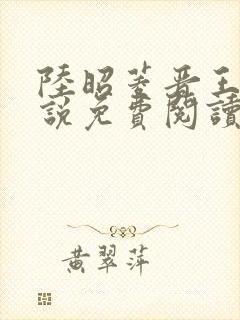 陸昭菱晋王
說免費閱讀
黄翠萍